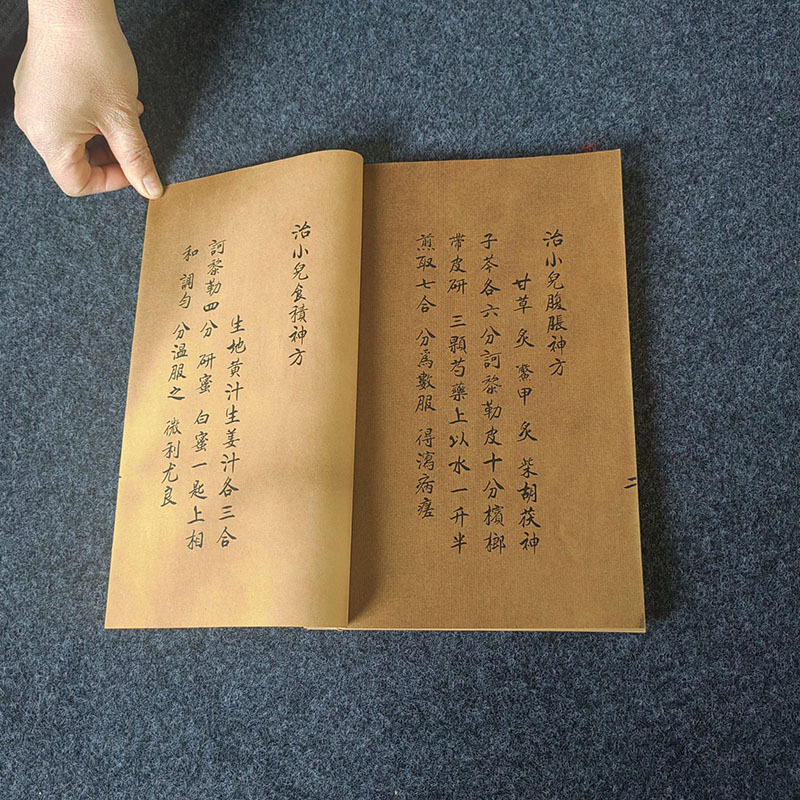 治小兒腹脹神方
甘草 炙 鱉甲 炙 柴胡茯神
子芩各六分訶黎勒皮十分檳榔
帶皮研 三顆芍藥上以水一升半
煎取七合 分爲數服 得瀉病瘥
二
治小兒食積神方
生地黄汁生姜汁各三合
訶黎勒四分 研蜜 白蜜一匙上相
和 調勻 分溫服之 微利尤良